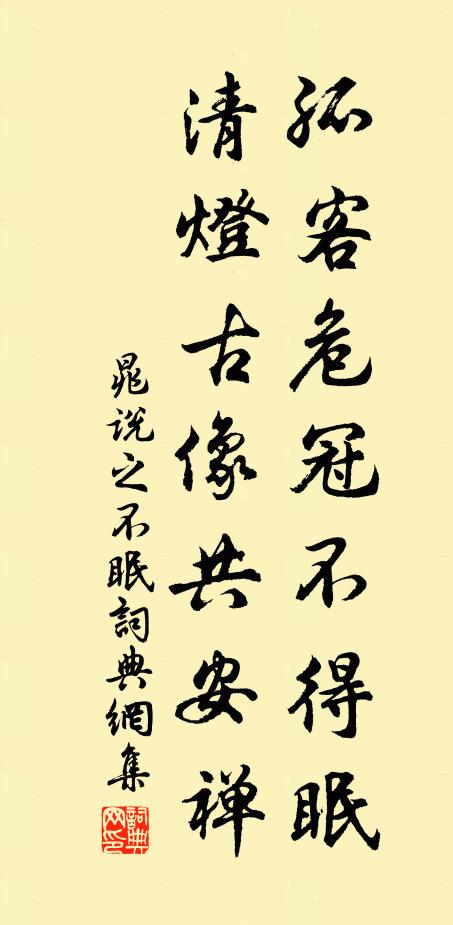 孤客危冠不得眠
清燈古像共安禅
晁說之不眠詞典網集
詞典
网印